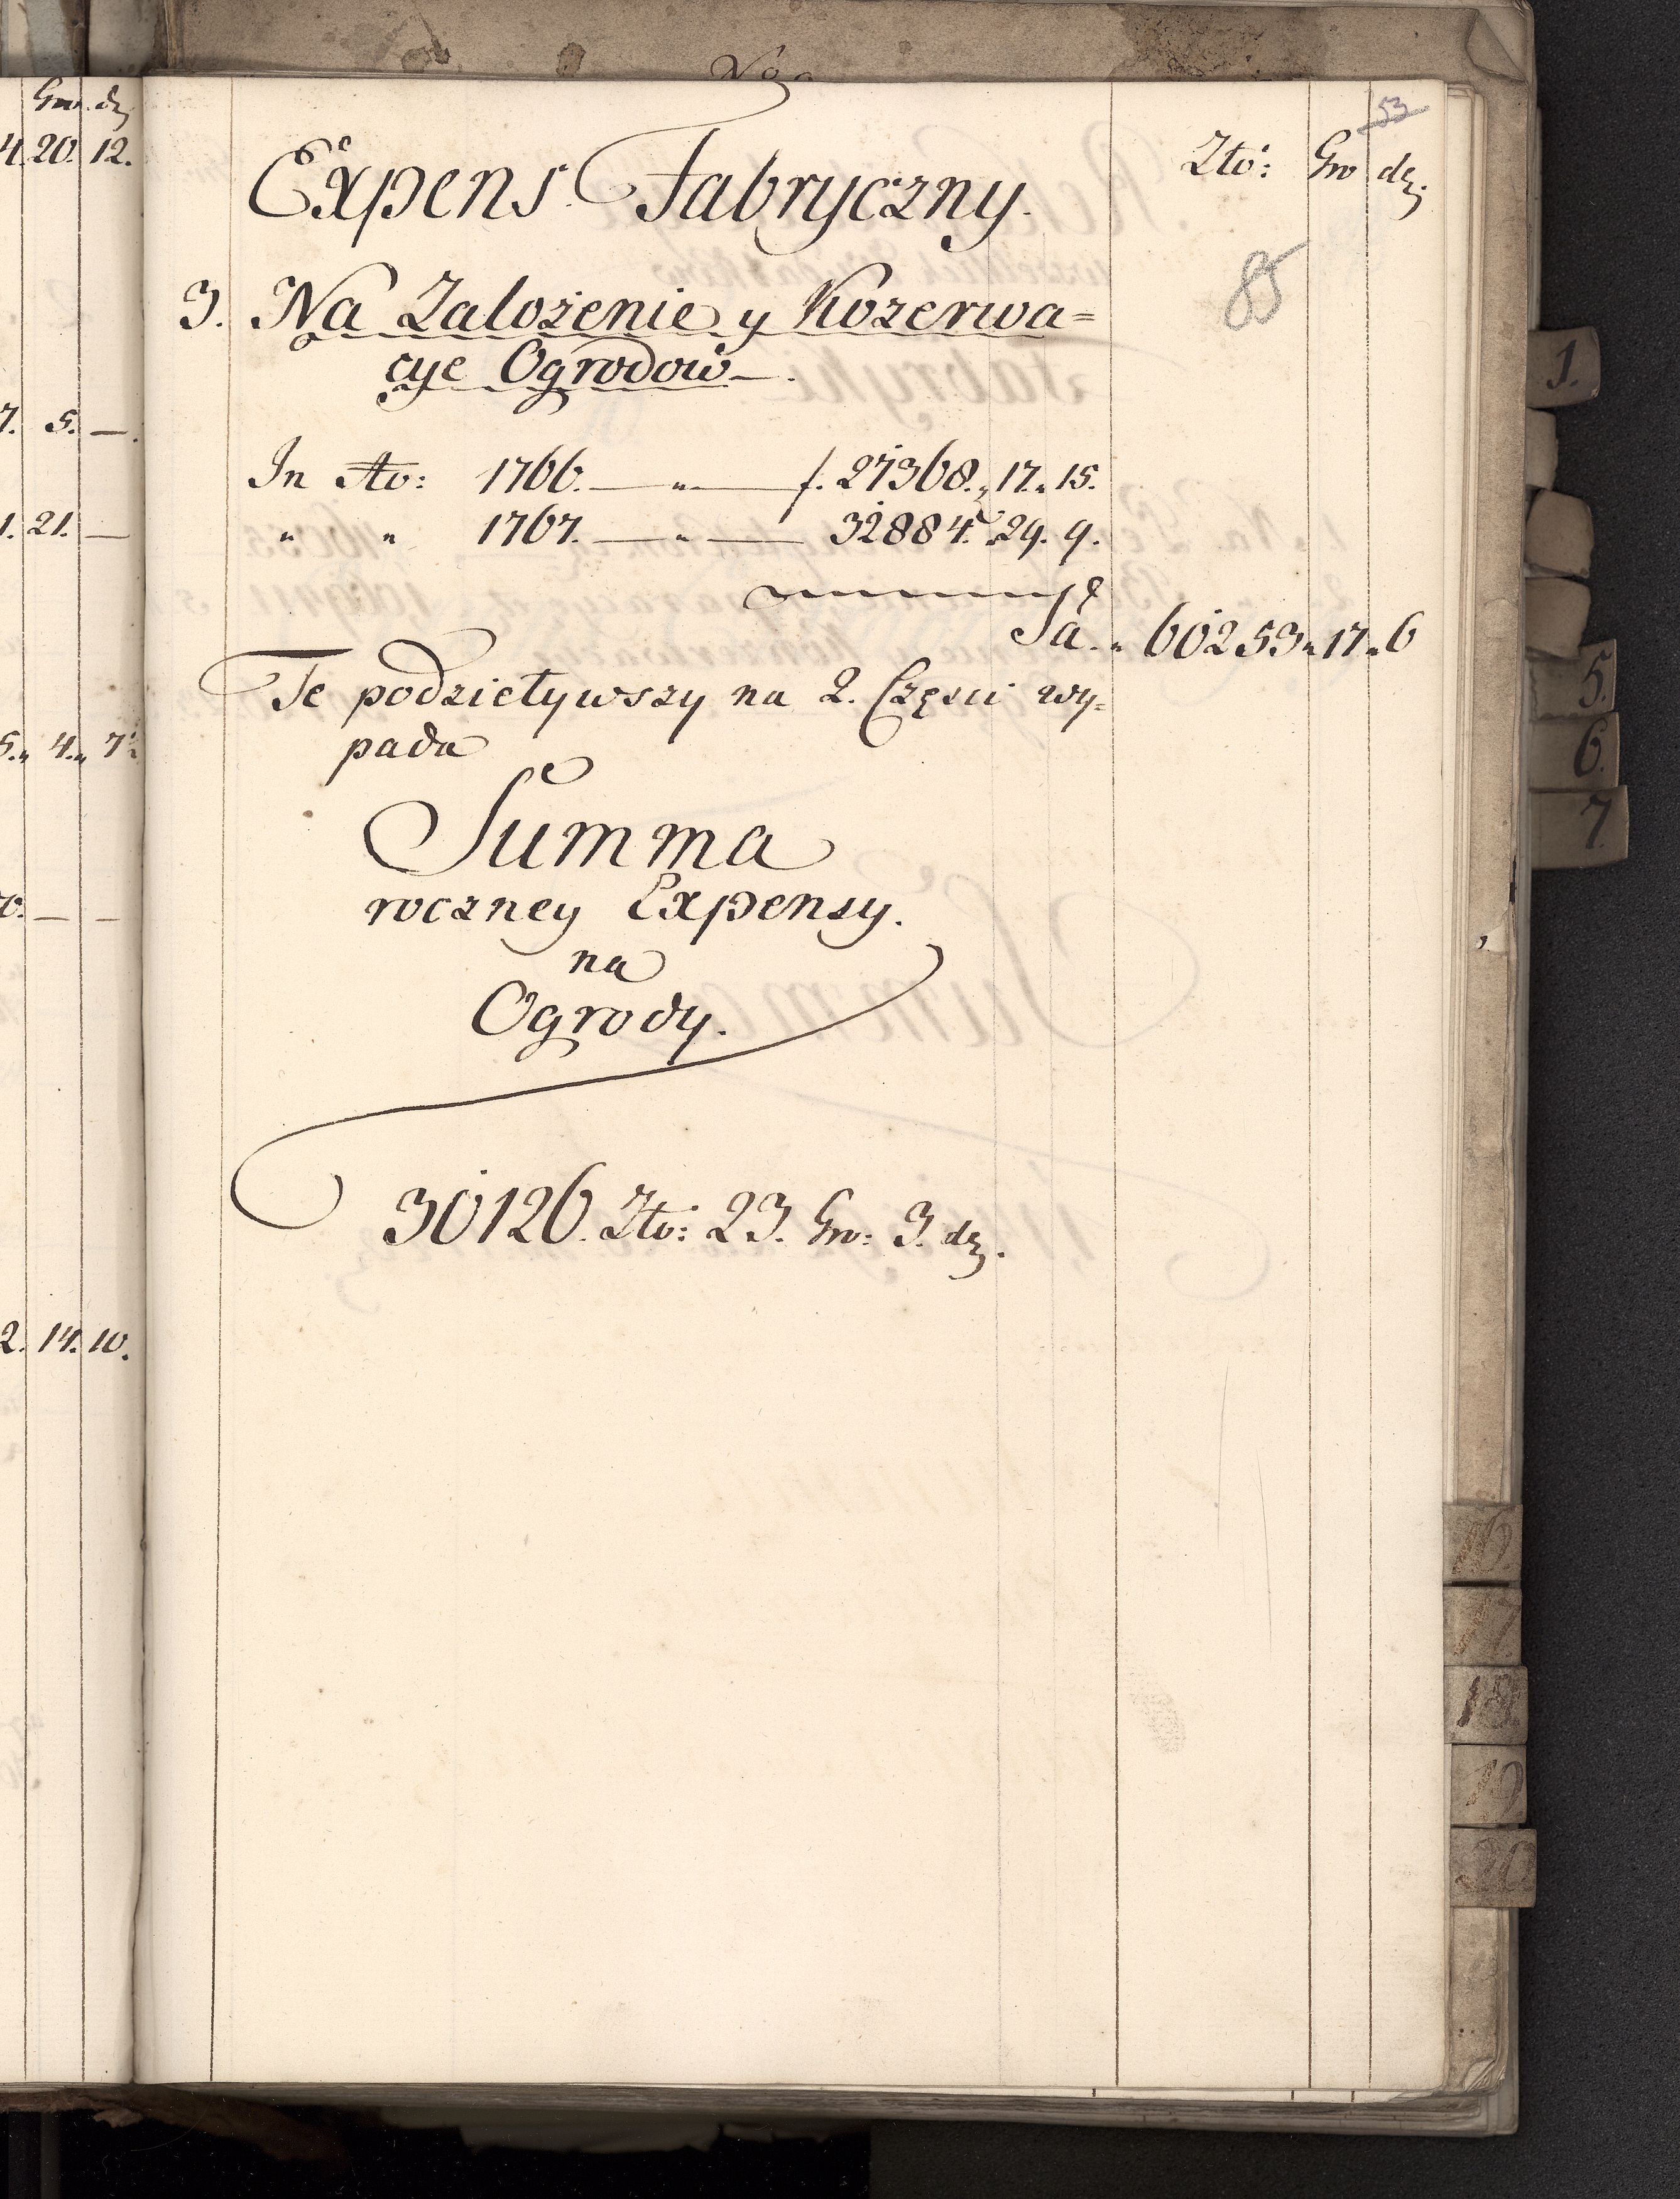 Gro. dz.
4. 20. 12.
7. 5. —.
1. 21. —
5. „ 4. „ 7½
0. — —
2. 14. 10.
53
Zło: Gro dz.
Expens Fabryczny.
85
3. Na Zalozenie y Kozerwa=
cye Ogrodow —.
In Ao: 1766. — „ — f. 27368. „ 17. „ 15.
„ „ 1767. — „ — 32884. „ 29. 9.
Sa. „ 60253 „ 17 „ 6
Te podzieływszy na 2. Częsci wy=
pada
Summa
roczney Expensy.
na
Ogrody.
30126. Zło: 23. Gro: 3. dz.
1.
5.
6.
7.
16.
17
18.
19
20